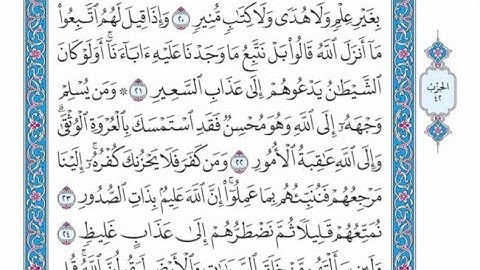 بِغَيْرِ عِلْمٍ وَلَا هُدًى وَلَا كِتَٰبٍ مُّنِيرٍ ٢٠ وَإِذَا قِيلَ لَهُمُ ٱتَّبِعُوا۟
مَآ أَنزَلَ ٱللَّهُ قَالُوا۟ بَلْ نَتَّبِعُ مَا وَجَدْنَا عَلَيْهِ ءَابَآءَنَآ أَوَلَوْ كَانَ
ٱلشَّيْطَٰنُ يَدْعُوهُمْ إِلَىٰ عَذَابِ ٱلسَّعِيرِ ٢١ ۞ وَمَن يُسْلِمْ
وَجْهَهُۥٓ إِلَى ٱللَّهِ وَهُوَ مُحْسِنٌ فَقَدِ ٱسْتَمْسَكَ بِٱلْعُرْوَةِ ٱلْوُثْقَىٰ
وَإِلَى ٱللَّهِ عَٰقِبَةُ ٱلْأُمُورِ ٢٢ وَمَن كَفَرَ فَلَا يَحْزُنكَ كُفْرُهُۥٓ إِلَيْنَا
مَرْجِعُهُمْ فَنُنَبِّئُهُم بِمَا عَمِلُوٓا۟ إِنَّ ٱللَّهَ عَلِيمٌۢ بِذَاتِ ٱلصُّدُورِ ٢٣
نُمَتِّعُهُمْ قَلِيلًا ثُمَّ نَضْطَرُّهُمْ إِلَىٰ عَذَابٍ غَلِيظٍ ٢٤
الحزب
٤٢